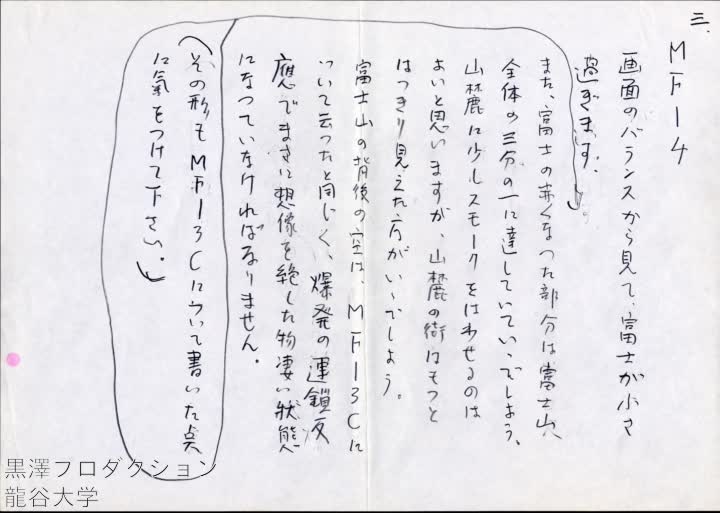 三.
MF14
画面のバランスから見て、富士が小さ
過ぎます.
また、富士の赤くなった部分は富士山
全体の三分の一に達していていゝでしよう、
山麓に少しスモークをはわせるのは
よいと思いますが、山麓の街はもつと
はつきり見えた方がいゝでしよう。
富士山の背後の空は、MF13Cに
ついて云つたと同じく、爆発の連鎖反
應でまさに想像を絶した物凄い状態
になつていなければなりません.
(その形もMF13Cについて書いた点
に気をつけて下さい.)
黒澤プロダクション
龍谷大学